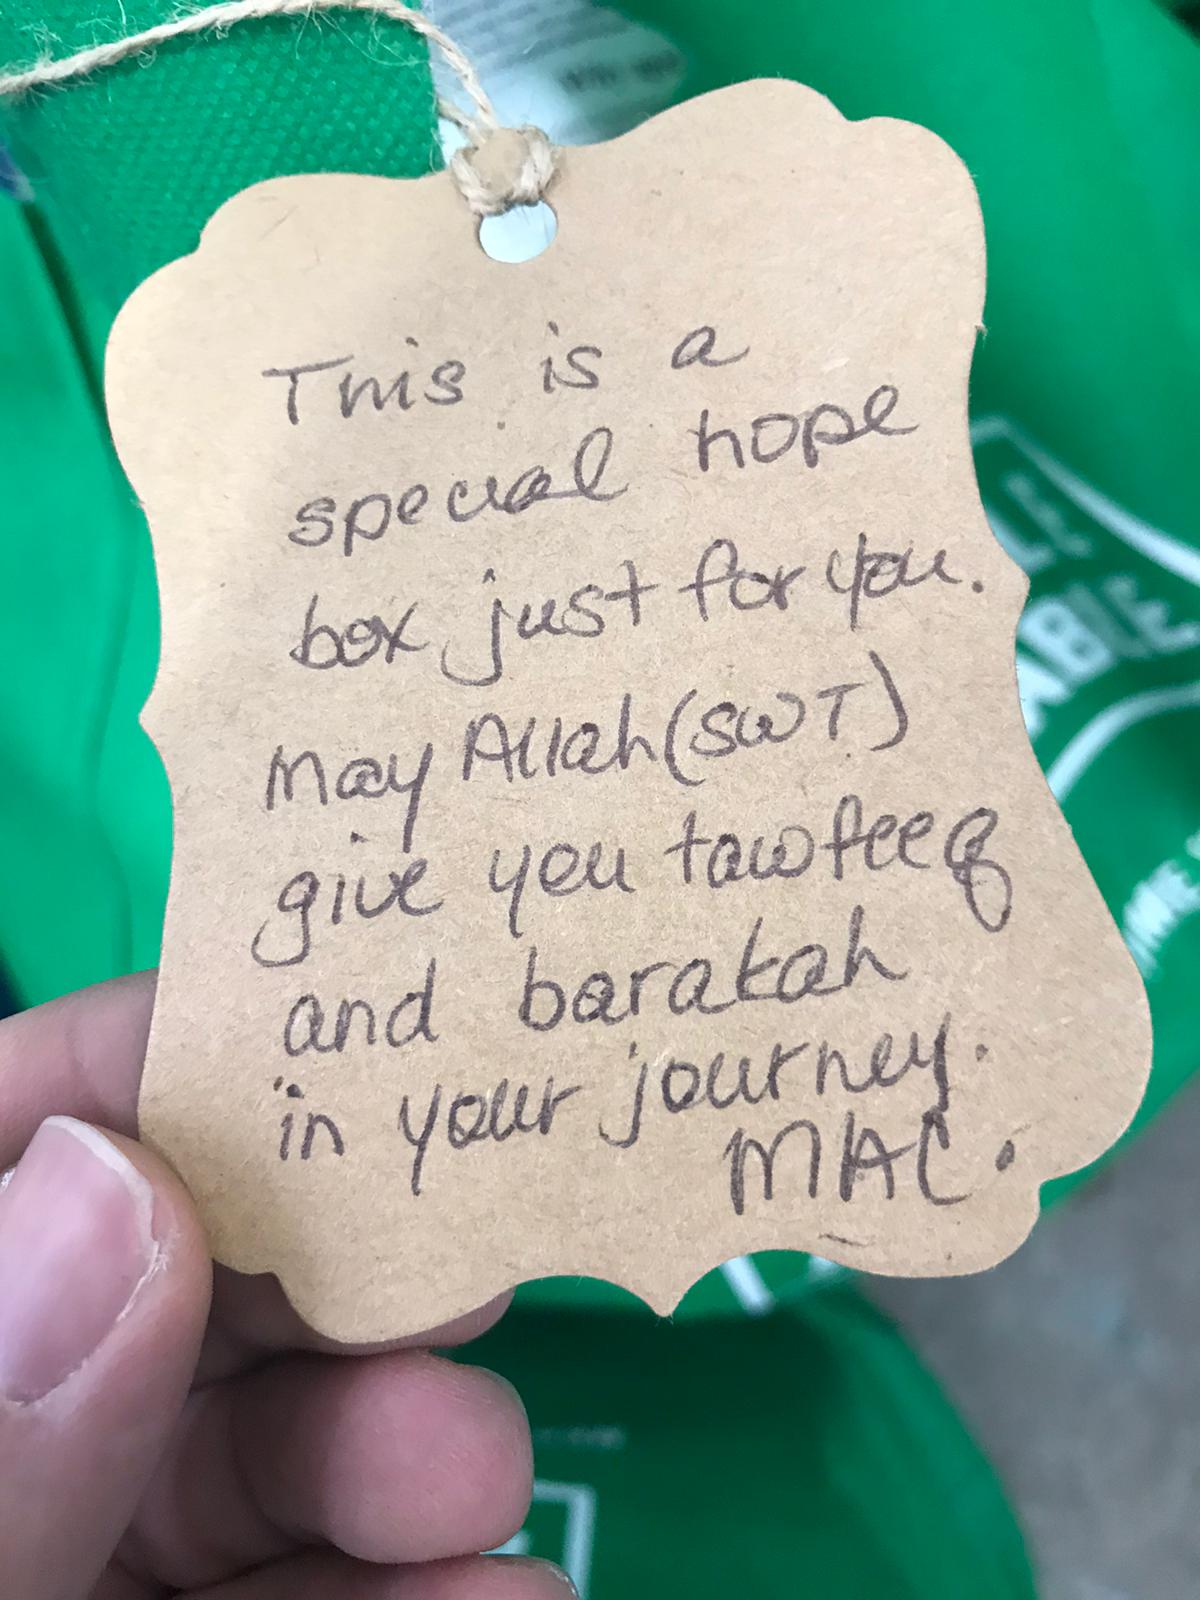 This is a
special hope
box just for you.
May Allah (SWT)
give you tawfeeq
and barakah
in your journey.
MAC.